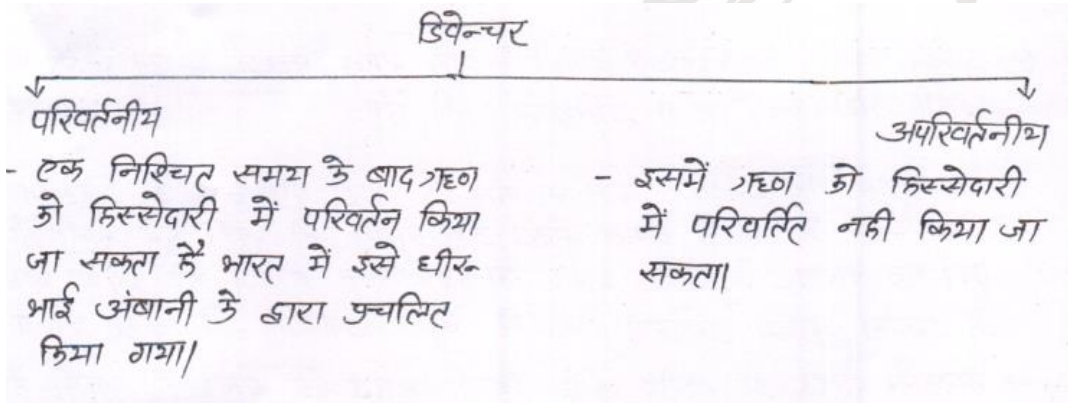 डिवेन्चर
परिवर्तनीय
- एक निश्चित समय के बाद ऋण
को हिस्सेदारी में परिवर्तन किया
जा सकता है भारत में इसे धीरु-
भाई अंबानी के द्वारा प्रचलित
किया गया।
अपरिवर्तनीय
- इसमें ऋण को हिस्सेदारी
में परिवर्तित नही किया जा
सकता।